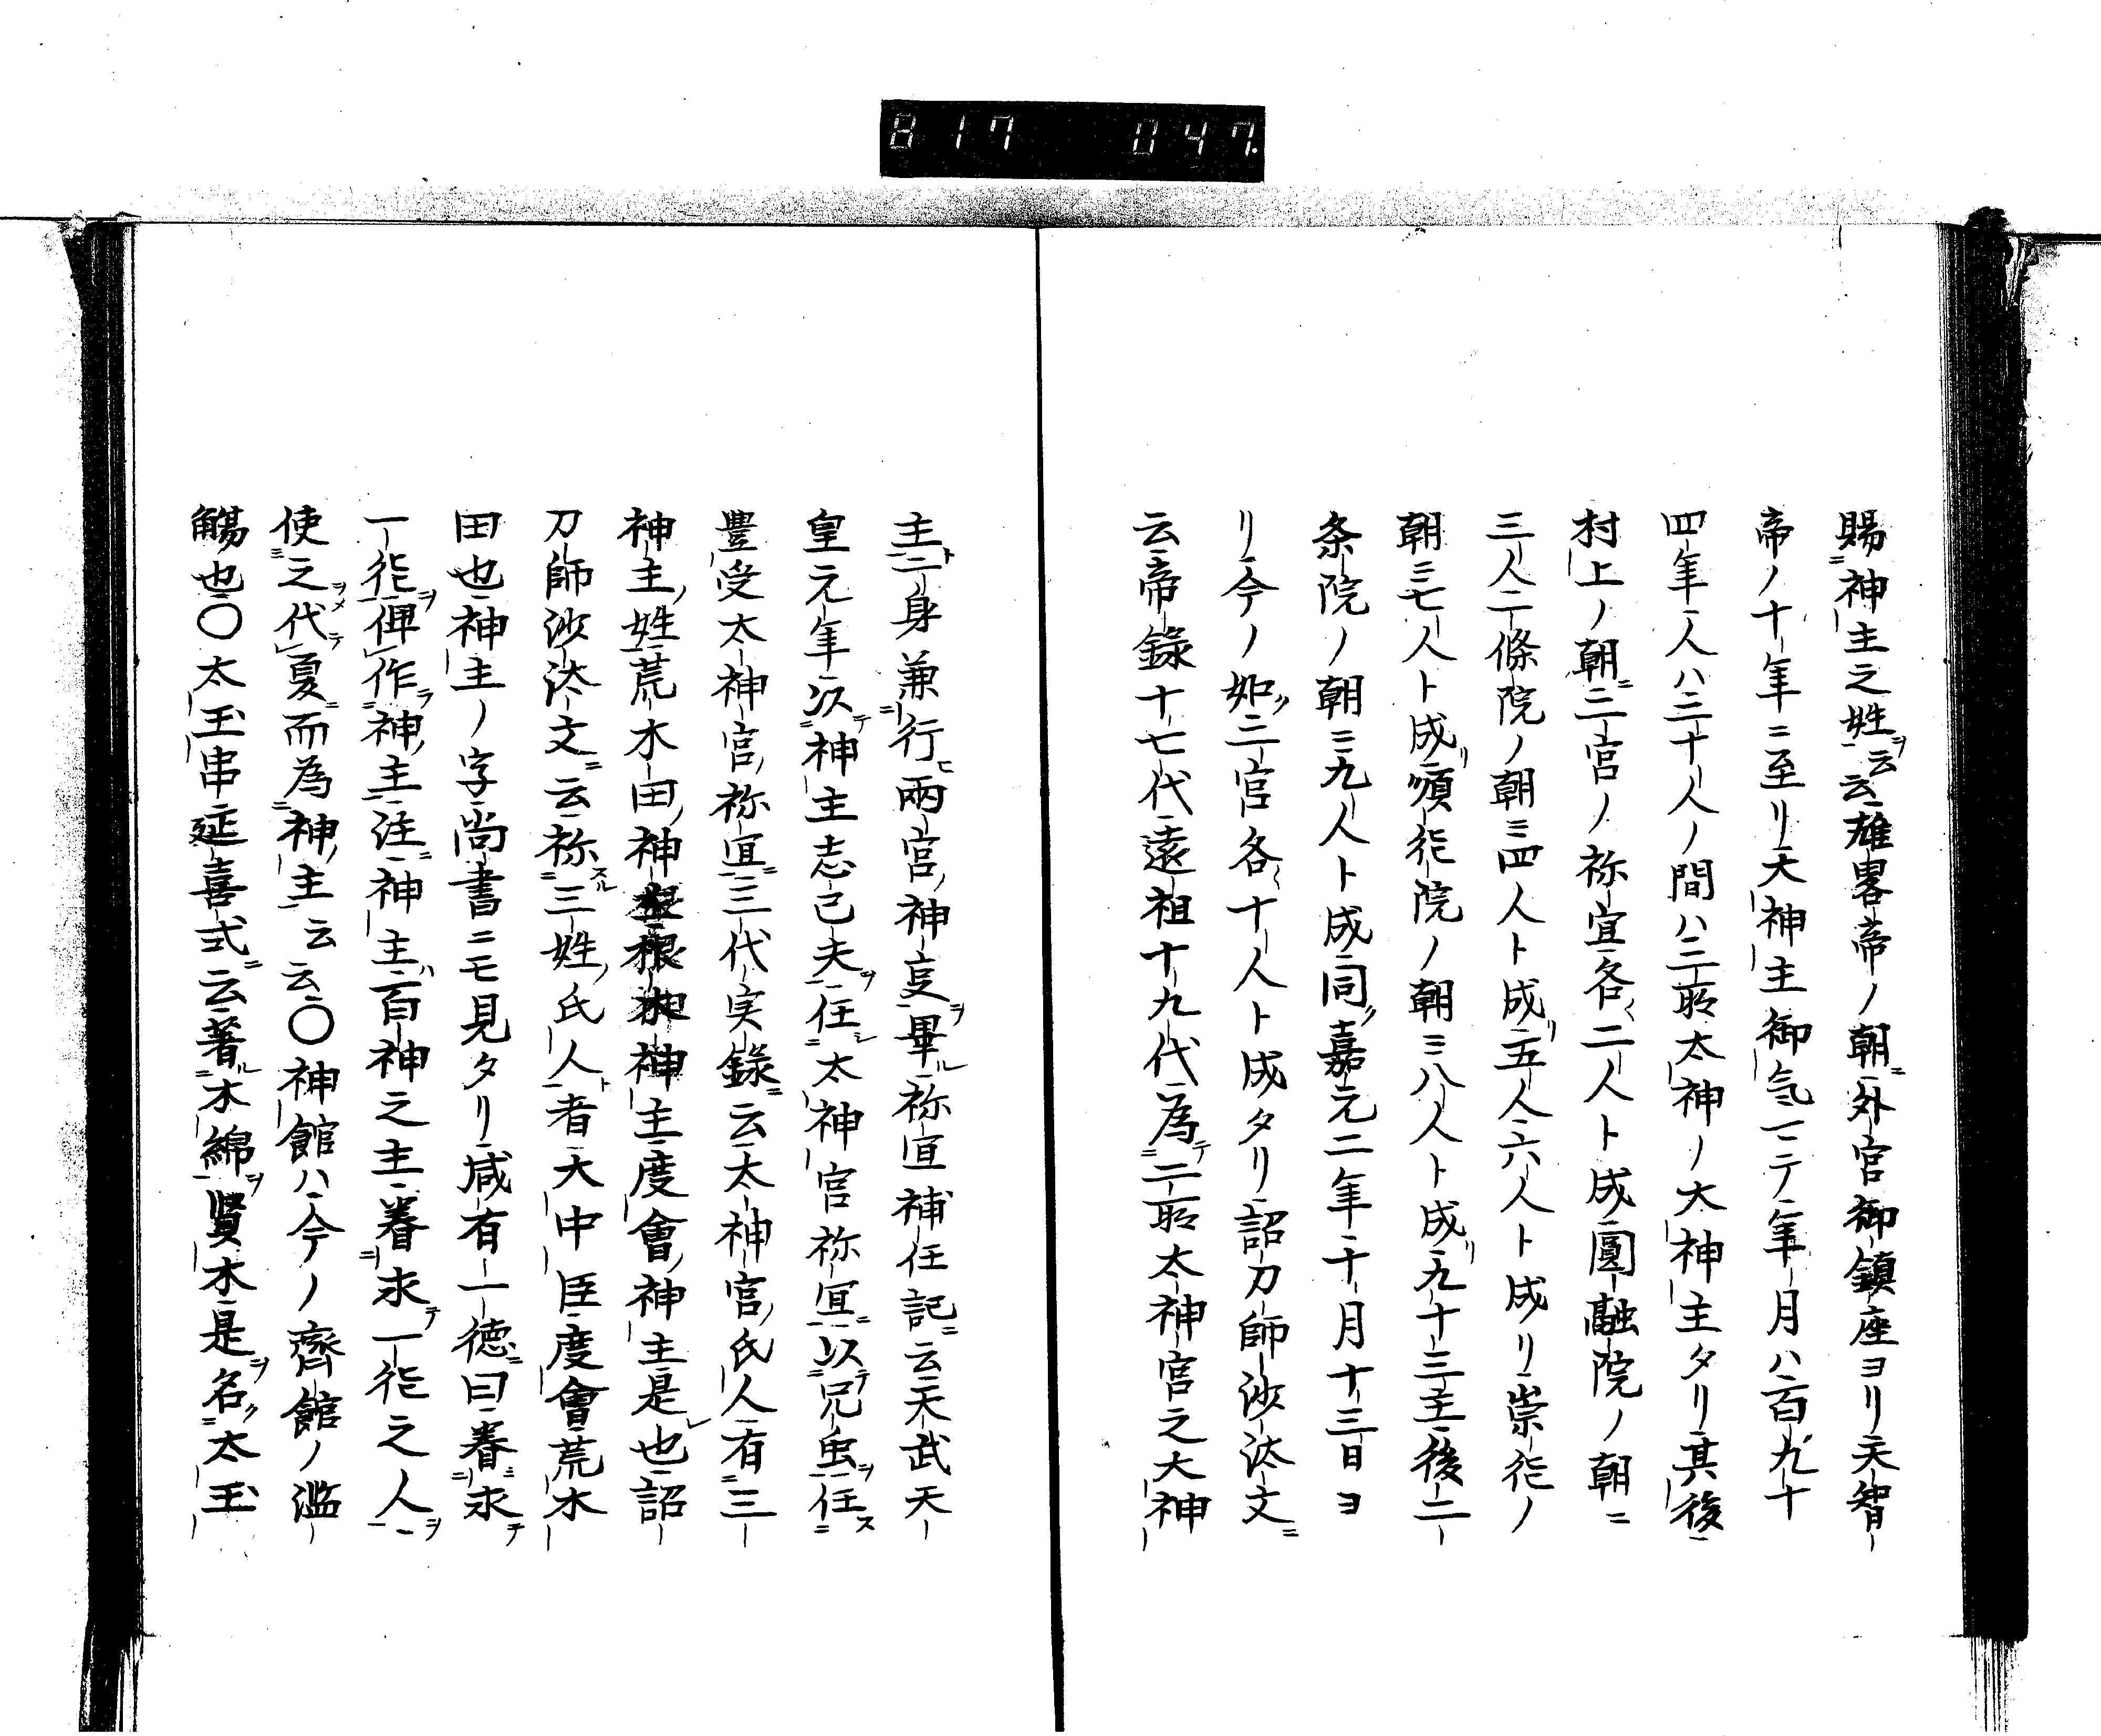 817 047.
賜神主之姓ヲ云云雄畧帝ノ朝ニ外宮御鎮座ヨリ天智
帝ノ十年ニ至リ大神主御気二テ年月ハ百九十
四年人ハ三十人ノ間ハ二所太神ノ大神主タリ其後
村上ノ朝ニ二宮ノ祢宜各〻二人ト成圓融院ノ朝ニ
三人二條院ノ朝ニ四人ト成リ五人六人ト成リ崇神ノ
朝ニ七人ト成リ順德院ノ朝ニ八人ト成リ九十三主後二
条院ノ朝ニ九人ト成同ク嘉元二年十月十三日ヨ
リ今ノ如ク二宮各〻十人ト成タリ詔刀師沙汰文ニ
云帝錄十七代遠祖十九代為テ二所太神宮之大神
主ト二身兼行ヒ兩宮ノ神㕝ヲ畢ル祢宜補任記ニ云天武天
皇元年以テ神主志己夫ヲ任シ太神宮祢宜ニ以テ兄虫ヲ任ス
豐受太神宮ノ祢宜ニ三代実錄ニ云太神宮ノ氏人有三
神主ノ姓荒木田ノ神主根木神主度會ノ神主是レ也詔
刀師沙汰文ニ云祢スル三姓ノ氏人ト者大中臣度會荒木
田也神主ノ字尚書ニモ見タリ咸有一德ニ曰眷ミ求テ
一德ヲ俾作ラ神ノ主注ニ神主ハ百神之主眷求テ一德之人ヲ
使之ヲメ代テ夏ニ而為神ノ主云云〇神館ハ今ノ齊館ノ濫
觴也〇太玉串延喜式ニ云著ル木綿ヲ賢木是ヲ名ク太玉